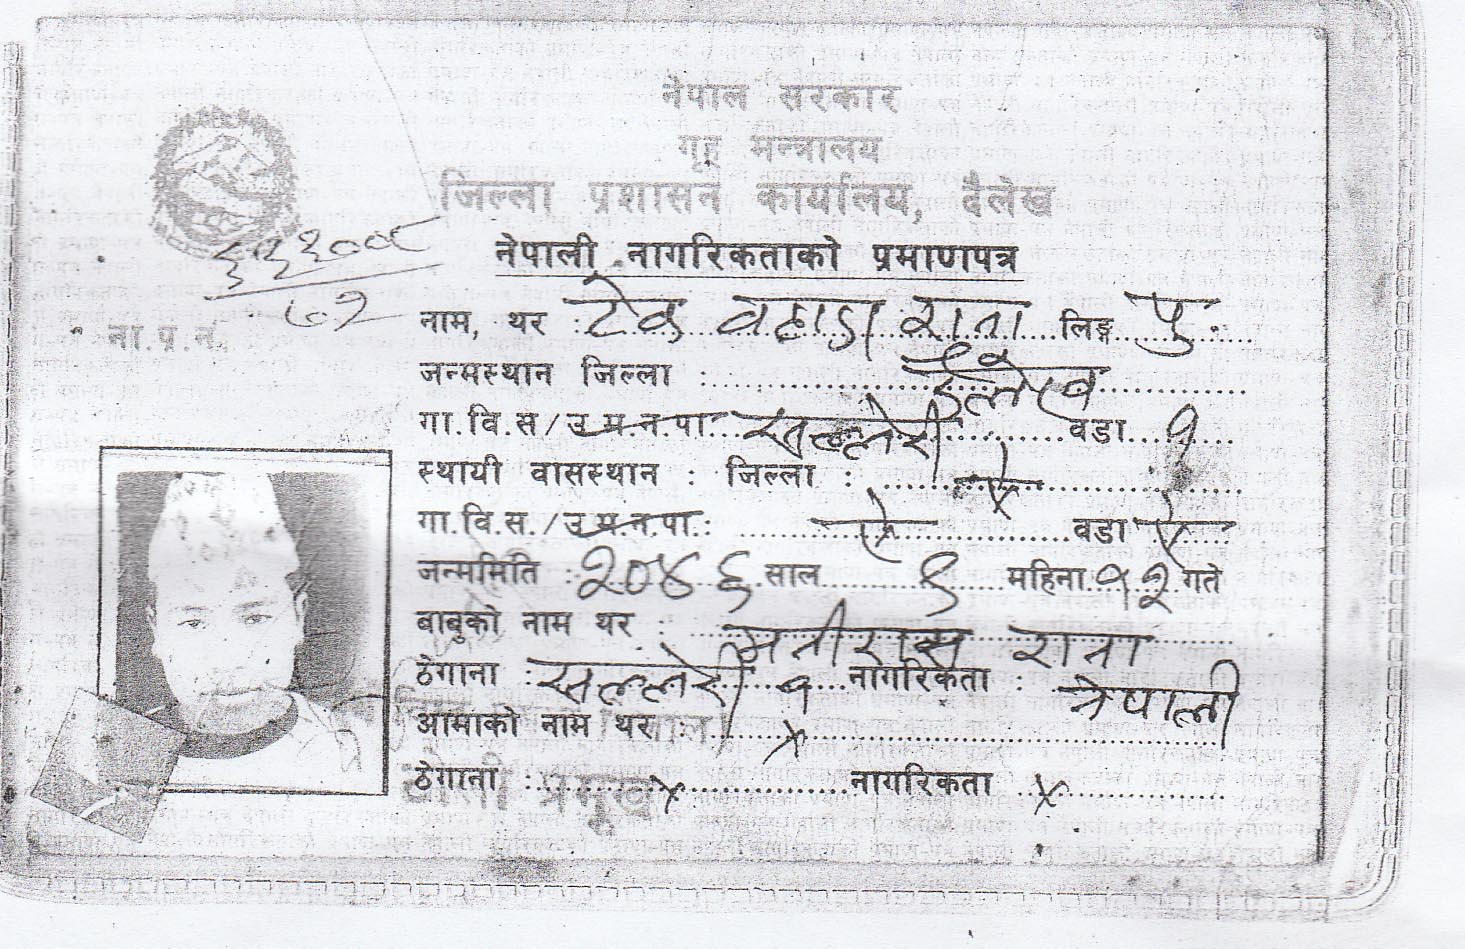 नेपाल सरकार
गृह मन्त्रालय
जिल्ला प्रशासन कार्यालय, दैलेख
नेपाली नागरिकताको प्रमाणपत्र
ना.प्र.न.
नाम, थर : टेक बहादुर राना लिङ्ग पु.
जन्मस्थान जिल्ला : दैलेख
गा.वि.स/उ.म.न.पा. खल्लेरी वडा १
स्थायी वासस्थान : जिल्ला :
गा.वि.स./उ.म.न.पा.: वडा
जन्ममिति : २०४६ साल महिना १२ गते
बाबुको नाम थर : राना
ठेगाना : खल्लेरी १ नागरिकता : नेपाली
आमाको नाम थर : x
ठेगाना : x नागरिकता x